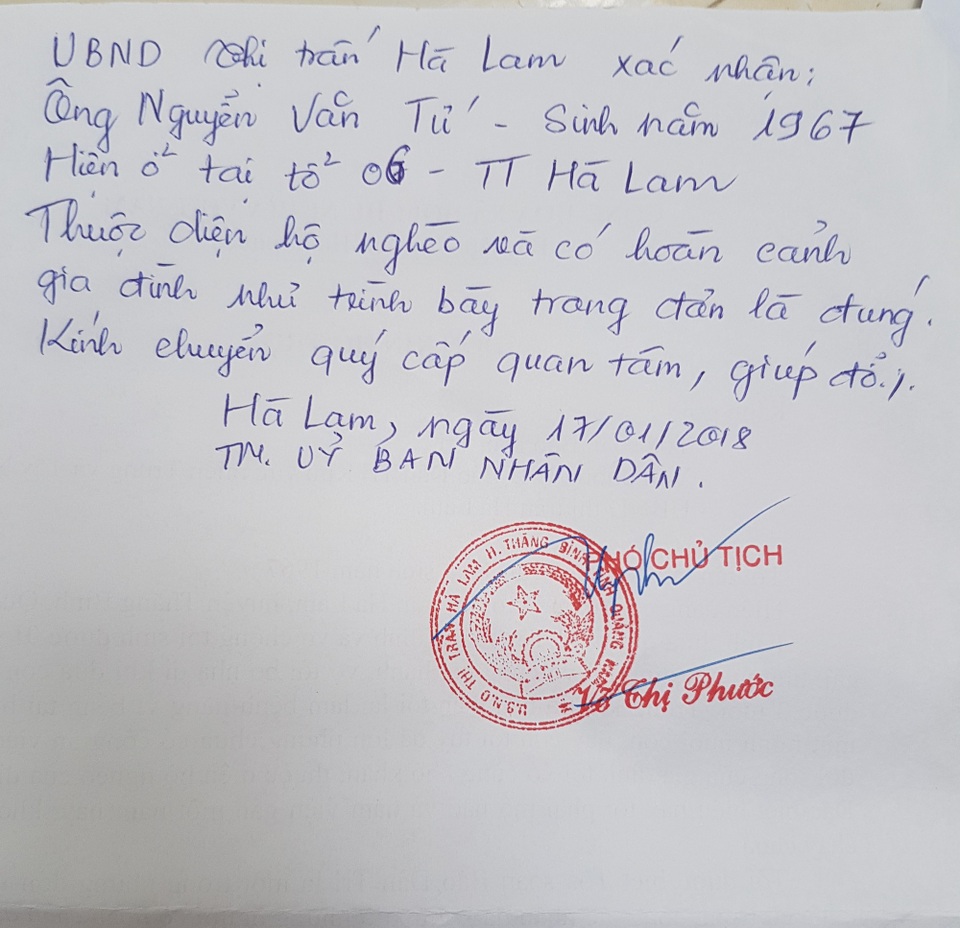 UBND thị trấn Hà Lam xác nhận;
Ông Nguyễn Văn Tứ - Sinh năm 1967
Hiện ở tại tổ 06 - TT Hà Lam
Thuộc diện hộ nghèo và có hoàn cảnh
gia đình như trình bày trang đơn là đúng.
Kính chuyển quý cấp quan tâm, giúp đỡ./.
Hà Lam, ngày 17/01/2018
TM. UỶ BAN NHÂN DÂN.
PHÓ CHỦ TỊCH
U.B.N.D THỊ TRẤN HÀ LAM H. THĂNG BÌNH TỈNH QUẢNG NAM
Võ Thị Phước